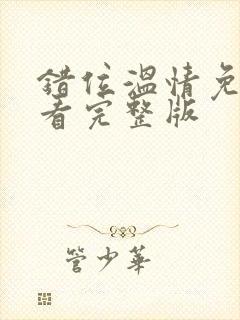 错位温情免
看完整版
管少华